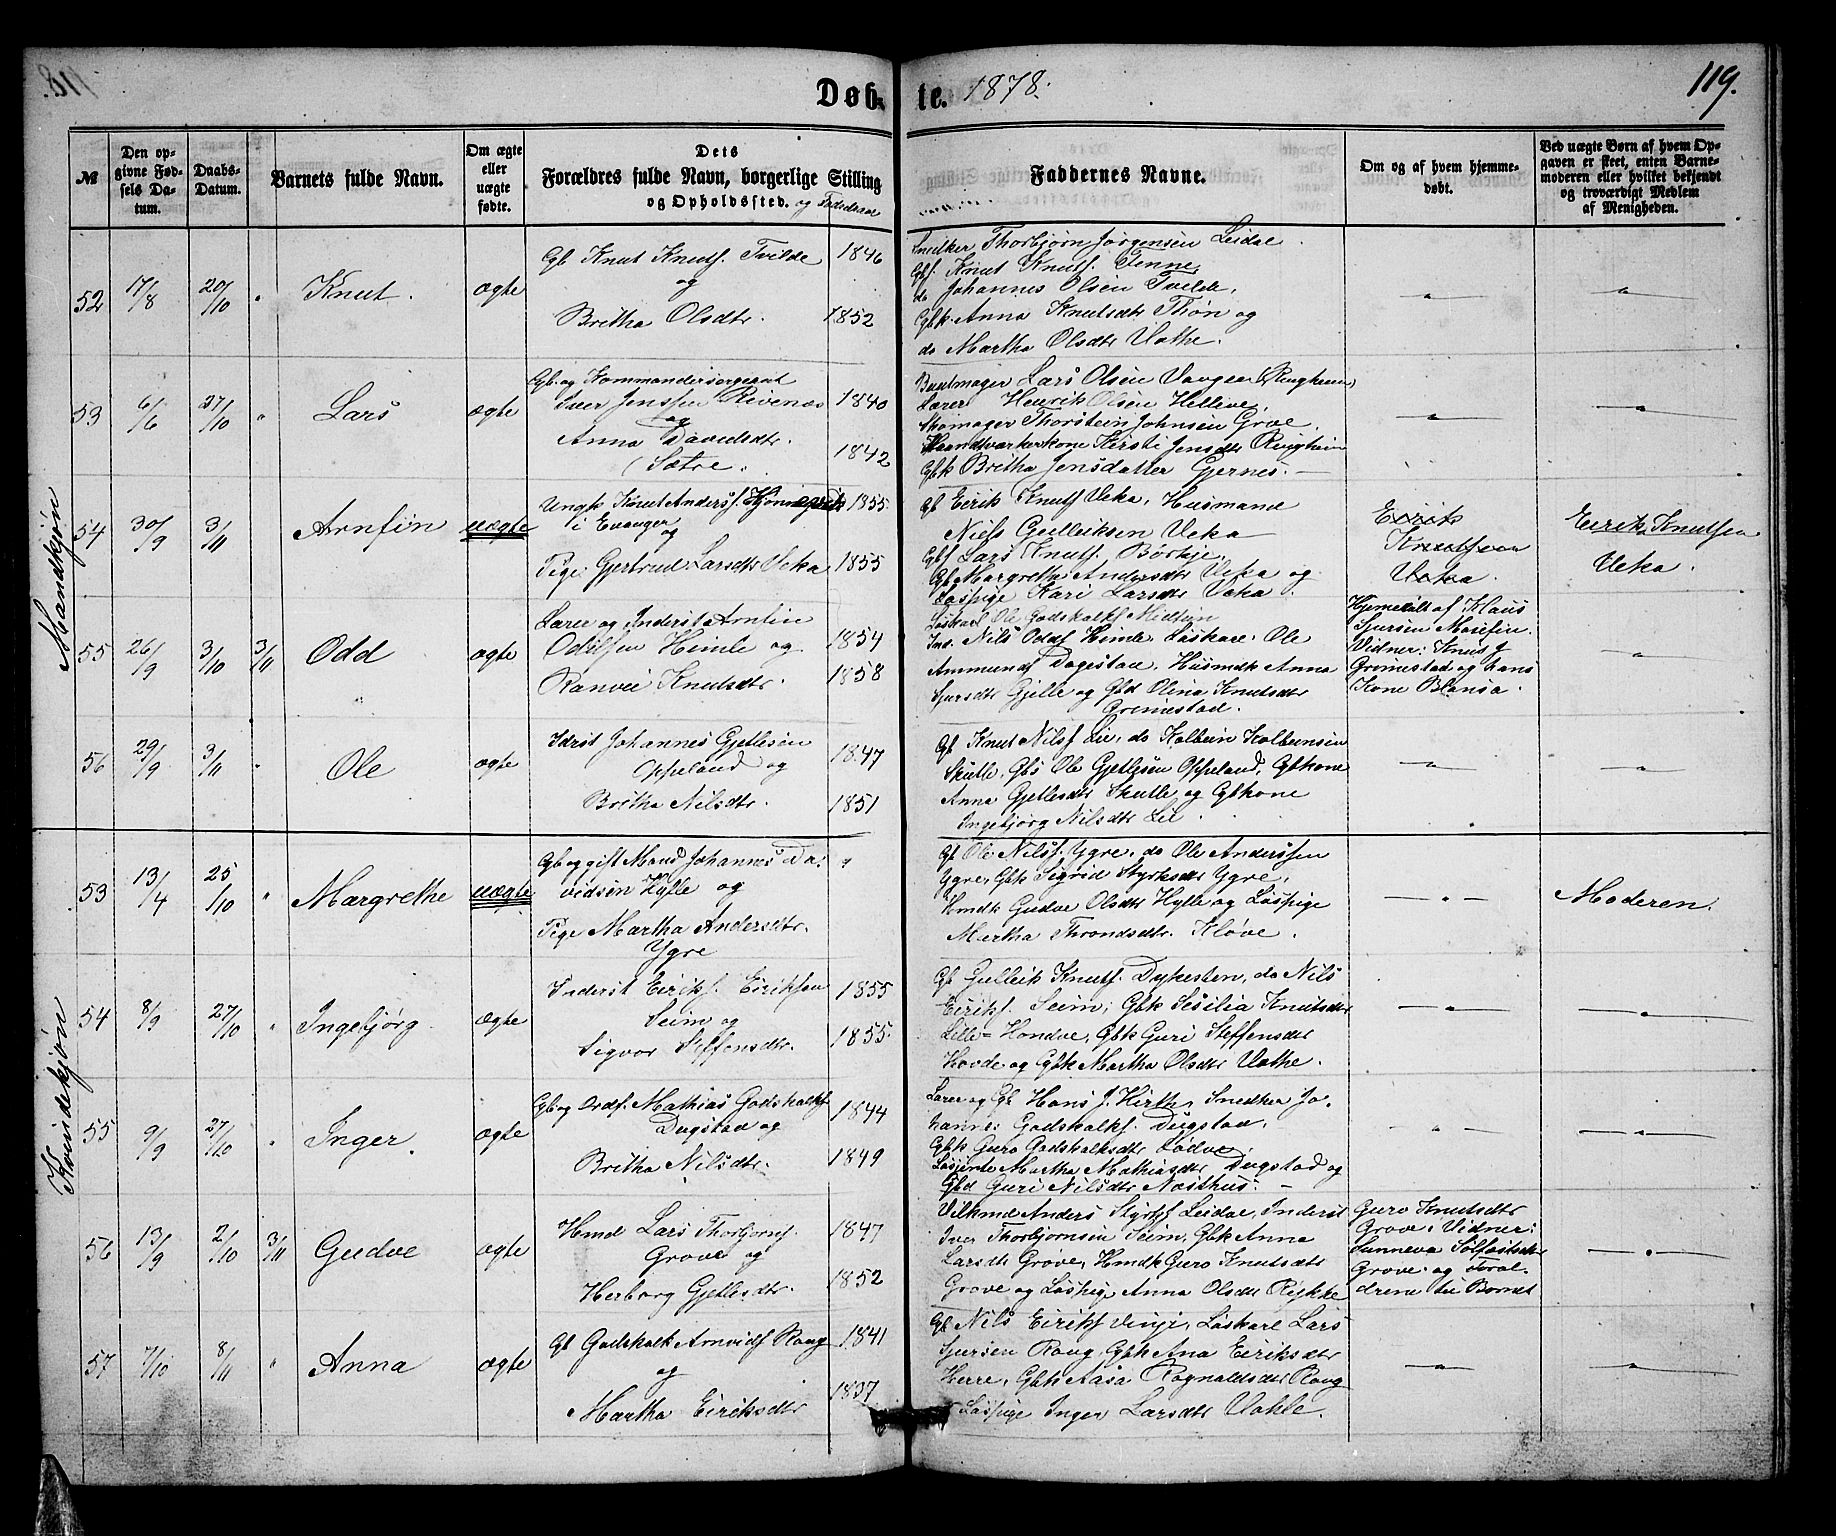 118.
Døb-te. 1878.
119.
№
Den opgivne Fødsels Datum.
Daabs-Datum.
Barnets fulde Navn.
Om ægte eller uægte fødte.
Dets
Forældres fulde Navn, borgerlige Stilling
og Opholdssted. og Fødselsaar
Faddernes Navne.
Om og af hvem hjemmedøbt.
Ved uægte Børn af hvem Opgaven er skeet, enten Barnemoderen eller hvilket bekjendt og troværdigt Medlem af Menigheden.
Mandkjøn
52 17/8 20/10 " Knut. ægte
Gb Knut Knuts. Tvilde 1846
og
Britha Olsdtr. 1852
Snedker Thorbjørn Jørgensen Leidal
Gbs. Knut Knuts. Tenne,
do Johannes Olsen Tvilde,
Gbk. Anna Knutsdtr Thøn og
do Martha Olsdtr Vathe.
53 6/6 27/10 " Lars ægte
Gb. og Kommandersergeant
Iver Jenssen Rivenæs 1840
og
Anna Davidsdtr. 1842
Sætre.
Buntmager Lars Olsen Vangen (Ringheim)
Lærer Henrik Olsen Helleve,
Skomager Thorstein Johnsen Grove.
Haandværkerkone Kirsti Jensdtr Ringheim
Gbk Britha Jensdatter Gjernes. —
54 30/9 3/11 Arnfin uægte
Ungk Knut Anders. 1855
i Evanger og
Pige Gjertrud Larsdtr Veka 1855
Gb Eirik Knuts Veka, Husmand
Niels Gulleiksen Veka
Gb Lars Knuts. Børkje,
Gb Margretha Andersdtr Veka og
Løspige Kari Larsdtr Veka.
Eirik
Knutsen
Veka.
Eirik Knutsen
Veka.
55 26/9 3/10 3/11 Odd ægte
Lærer og Inderst Arnfin
Oddsen Himle og 1854
Ranvei Knutsdtr. 1858
Løskarl Ole Godskalks Midtun
Ind. Nils Odds Himle, Løskarl Ole
Ammunds Dagestad, Husmdk Anna
Sjursdtr Gjelle og Gbd Olina Knutsdtr
Grimestad.
Hjemedøbt af Klaus
Sjursen Mosefin.
Vidner: Knut G
Grimestad og hans
Kone Blansa.
56 29/9 3/11 " Ole ægte
Idrst Johannes Gjetlesen
Oppeland og 1847
Britha Nilsdtr. 1851
Gb Knut Nils Lie, do Kolbein Kolbeinsen
Skutle, Gbs Ole Gjetlesen Oppeland, Gbkone
Anna Gjetlesdtr Skutle og Gbkone
Ingebjørg Nilsdtr Lie
Kvindekjøn
53 13/4 25/10 " Margrethe uægte
Gb og gift Mand Johannes Da- "
vidsen Hylle og
Pige Martha Andersdtr.
Ygre
Gb Ole Nils. Ygre, do Ole Anderssen
Ygre, Gbk Sigrid Styrksdtr Ygre,
Hmdk Gudve Olsdtr Hylle og Løspige
Martha Throndsdtr. Kløve.
Moderen.
54 8/9 27/10 " Ingebjørg ægte
Inderst Eiriks. Eiriksen 1855
Seim og
Sigvor Steffensdtr. 1855.
Gb Gulleik Knuts. Dykesten, do Nils
Eiriks. Seim, Gbk Sesilia Knutsdtr
Lille-Hondve, Gbk Guri Steffensdtr
Hovde og Gbk Martha Olsdtr Vathe.
55 9/9 27/10 " Inger. ægte
Gb og Ordf. Mathias Godskalks 1844
Dugstad og
Britha Nilsdtr. 1849
Lærer og Gb Hans J. Hirth, Snedker Jo-
hannes Godskalks. Dugstad,
Gbk Guro Godskalksdtr Lødve,
Løsjente Martha Mathiasdtr Dugstad og
Gbd Guri Nilsdtr Næsthus. —
56 13/9 2/10 3/11 Gudve ægte
Hmd Lars Thorbjørns. 1847
Grove og
Herborg Gjetlesdtr. 1852
Anders Styrks Leidal, Inderst
Iver Thorbjørnsen Seim, Gbk Anna
Larsdtr Grove, Hmdk Guro Knutsdtr
Grove og Løspige Anna Olsdtr Rykke
Guro Knutsdtr
Grove. Vidner:
Sunneva Solfæstsdtr
Grove og Foræl-
drene til Barnet
57 7/10 8/11 " Anna ægte
Gb Godskalk Arnvids Roug 1841
og
Martha Eiriksdtr 1837
Gb Nils Eiriks Vinje, Løskarl Lars
Sjursen Roug, Gbk Ana Eiriksdtr
Herre, Gbk Aasa Rognaldsdtr Roug
Løspige Inger Larsdtr Vahle.